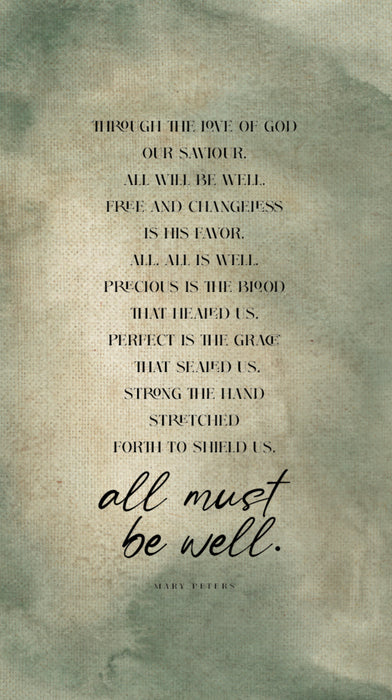 THROUGH THE LOVE OF GOD
OUR SAVIOUR.
ALL WILL BE WELL.
FREE AND CHANGELESS
IS HIS FAVOR.
ALL. ALL IS WELL.
PRECIOUS IS THE BLOOD
THAT HEALED US.
PERFECT IS THE GRACE
THAT SEALED US.
STRONG THE HAND
STRETCHED
FORTH TO SHIELD US.
all must
be well.
MARY PETERS